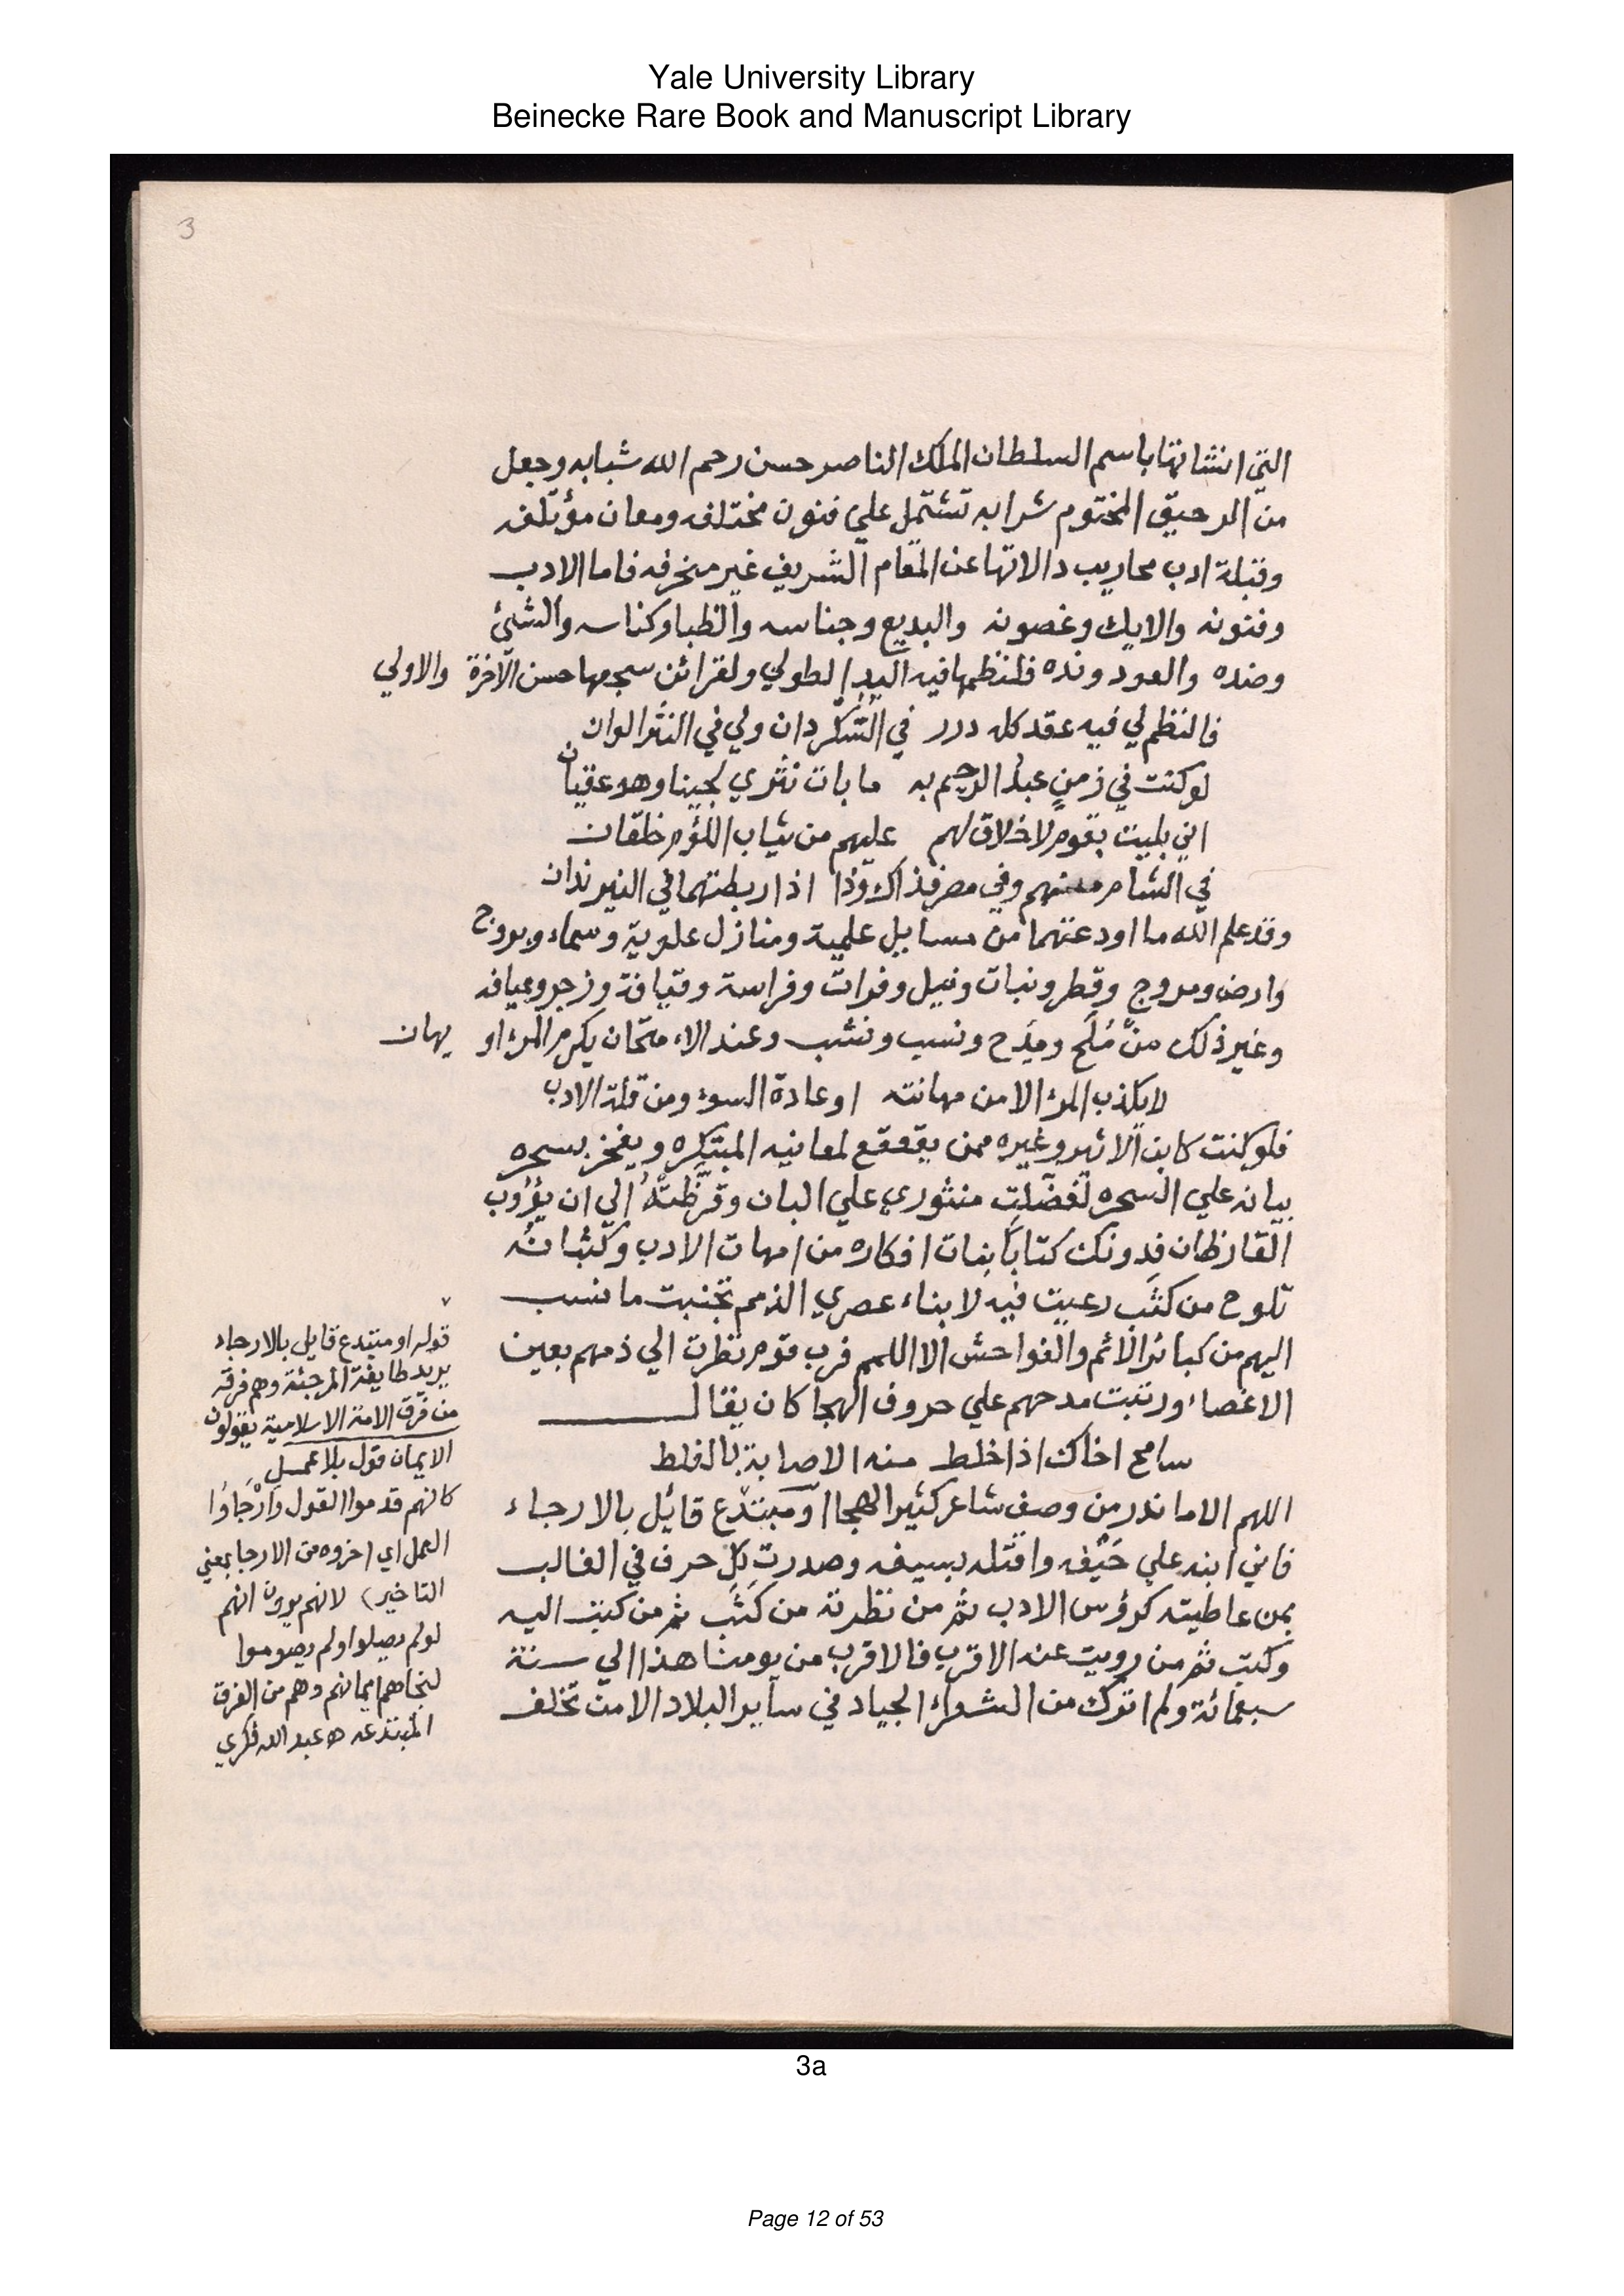 Yale University Library
Beinecke Rare Book and Manuscript Library
3
التي انشاتها باسم السلطان الملك الناصر حسن رحم الله شبابه وجعل
من الرحيق المختوم شرابه تشتمل علي فنون مختلفه ومعان مؤتلفه
وقبلة ادب محاريب دالاتها عن المقام الشريف غير منحرفه فاما الادب
وفنونه والايك وغصونه والبديع وجناسه والظبا وكناسه والشئ
وضده والعود ونده فلنظمها فيه اليد الطولي ولقرائن سجعها حسن الآخرة والاولي
فالنظم لي فيه عقد كله درر في السُّكَّردان ولي في النثر الوان
لو كنت في زمن عبد الرحيم به ما بات نثري لجينا وهو عقيان
اني بليت بقوم لا خلاق لهم عليهم من ثياب اللؤم خلقان
في الشام منهم وفي مصر فذاك وذا اذا ربطتهما في النير ندان
وقد علم الله ما اودعتهما من مسايل علمية ومنازل علوية وسماء وبروج
وارض ومروج وقطر ونبات ونيل وفرات وفراسة وقيافة وزجر وعيافه
وغير ذلك منْ مُلَح ومِدَح ونسب ونشب وعند الامتحان يكرم المرء او يهان
لا يكذب المرء الا من مهانته او عادة السوء ومن قلة الادب
فلو كنت كابن الاثير وغيره ممن يقعقع لمعانيه المبتكره ويفخر بسحره
بيانه علي السحره لفضّلت منثوري علي البان وقرّظته الي ان يؤوب
القارظان فدونك كتابًا بنات افكاره من امهات الادب وكثبانه
تلوح من كثَب رعيت فيه لابناء عصري الذمم تجنبت ما نسب
اليهم من كبائر الاثم والفواحش الا اللمم فرب قوم نظرت الي ذمهم بعين
الاغضاء ورتبت مدحهم علي حروف الهجا كان يقال
سامح اخاك اذا خلط منه الاصابة بالغلط
اللهم الا ما ندر من وصف شاعر كثير الهجا او مبتدع قائل بالارجاء
فاني ابنه علي حَيْفه واقتله بسيفه وصدرت كل حرف في الغالب
بمن عاطيته كؤوس الادب ثم من نظرته من كَثَب ثم من كتبت اليه
وكتب ثم من رويت عنه الاقرب فالاقرب من يومنا هذا الي سنة
سبعمائة ولم اترك من الشعراء الجياد في ساير البلاد الا من تخلف
قوله او مبتدع قايل بالارجاء
يريد طايفة المرجئة وهم فرقه
من فرق الامة الاسلامية يقولون
الايمان قول بلا عمل
كانهم قدموا القول وَارْجَاوُا
العمل اي اخروه من الارجا بمعني
التاخير) لانهم يرون انهم
لو لم يصلوا ولم يصوموا
لنجاهم ايمانهم وهم من الفرق
المبتدعه اه عبد الله فكري
3a
Page 12 of 53